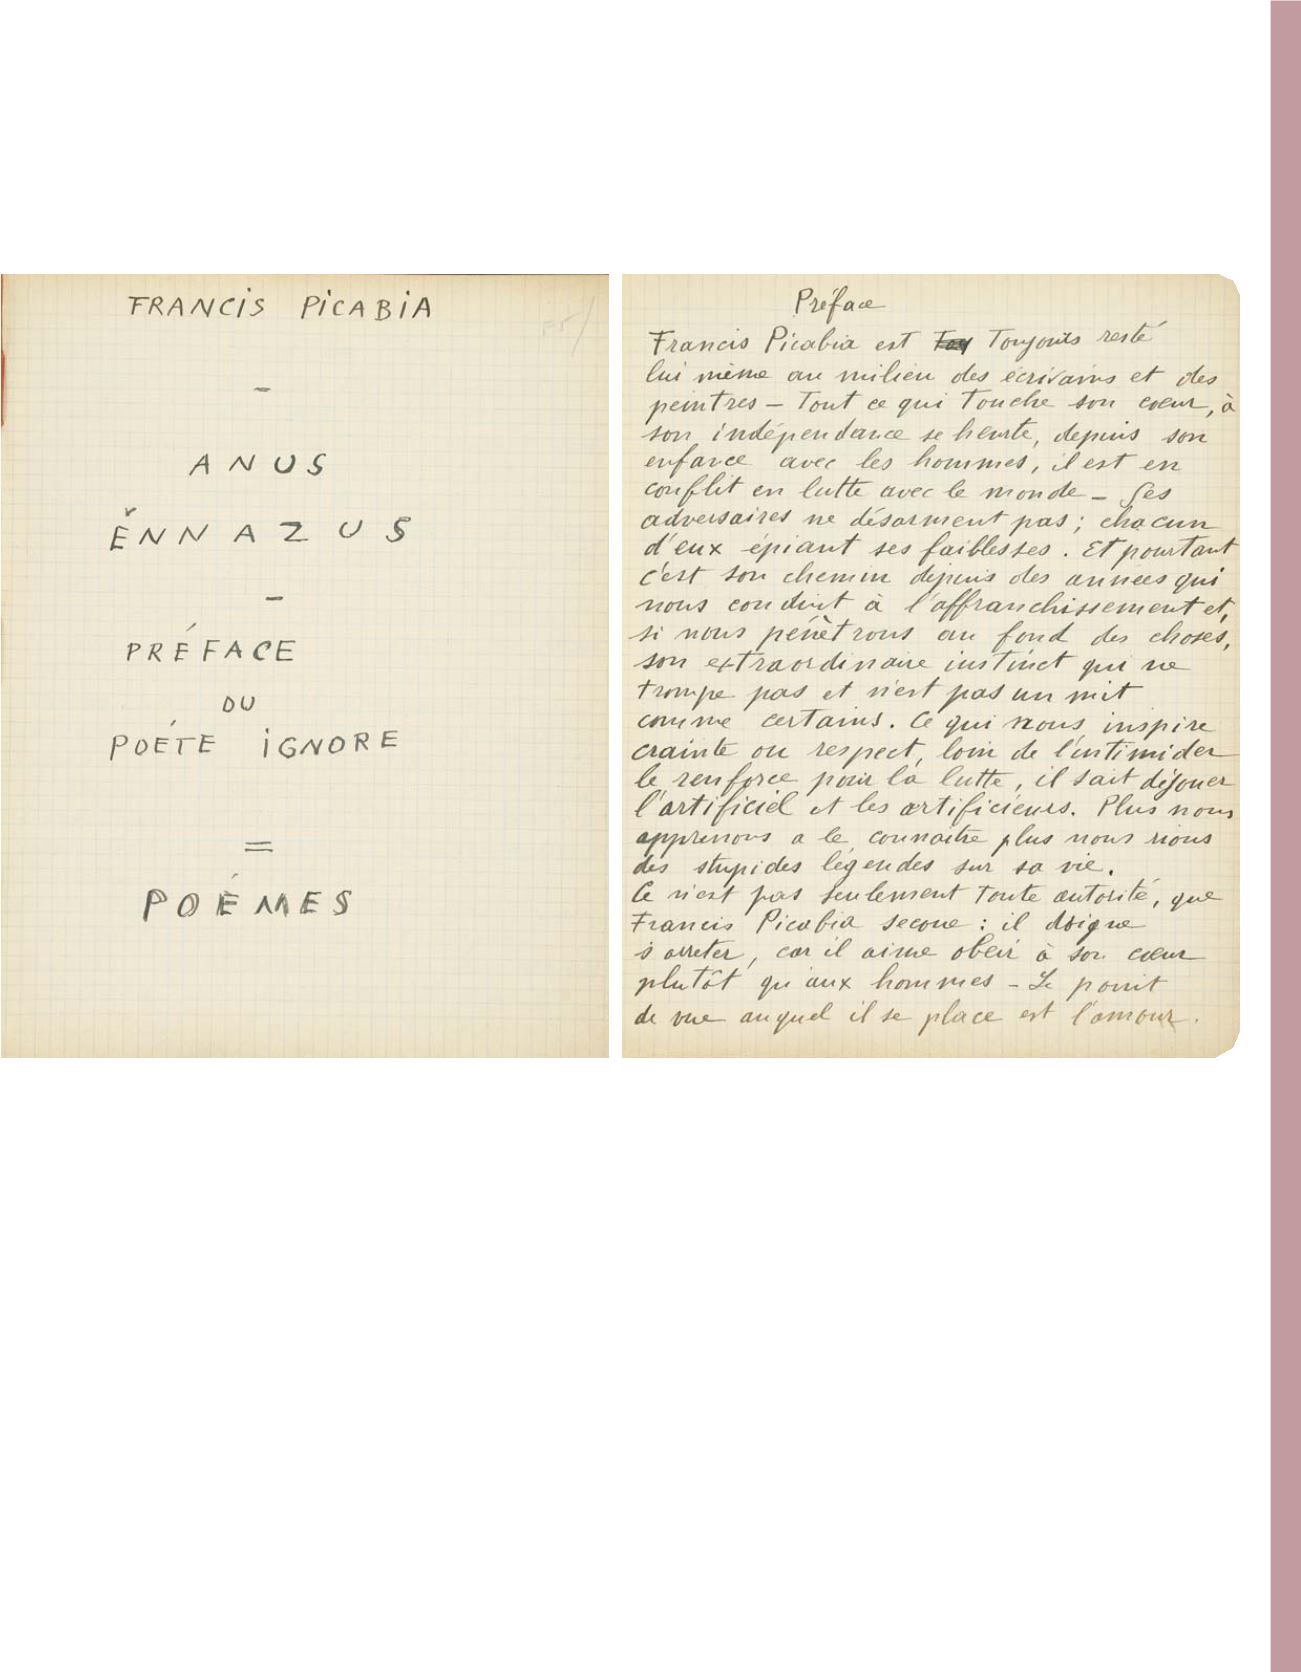 FRANCiS PiCABiA
–
ANUS
ĔNNAZUS
–
PRÉFACE
DU
POÉTE iGNORE
=
POÉMES
Préface
Francis Picabia est Toujours resté
lui même au milieu des écrivains et des
peintres – Tout ce qui Touche son coeur, à
son indépendance se heurte, depuis son
enfance avec les hommes, il est en
conflit en lutte avec le monde – Ses
adversaires ne désarment pas ; chacun
d'eux épiant ses faiblesses. Et pourtant
c'est son chemin depuis des années qui
nous conduit à l'affranchissement et,
si nous pénètrons au fond des choses,
son extraordinaire instinct qui ne
trompe pas et n'est pas un mit
comme certains. Ce qui nous inspire
crainte ou respect, loin de l'intimider
le renforce pour la lutte, il sait déjouer
l'artificiel et les artificieurs. Plus nous
apprenons a le connaitre plus nous rions
des stupides légendes sur sa vie.
Ce n'est pas seulement Toute autorité, que
Francis Picabia secoue : il daigne
s'arreter, car il aime obeir à son coeur
plutôt qu'aux hommes – Le point
de vue auquel il se place est l'amour.